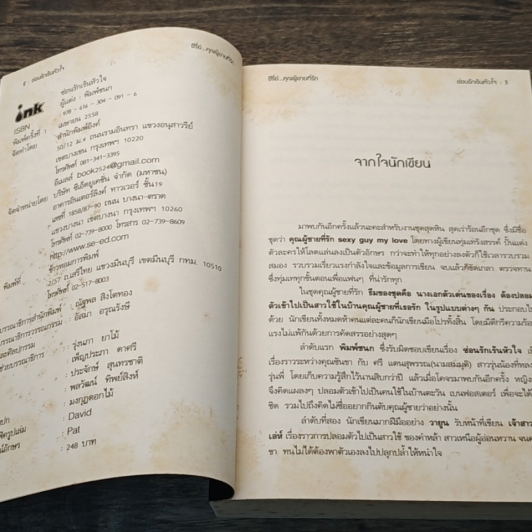 4 · ซ่อนรักเร้นหัวใจ
ซีรีย์...คุณผู้ชายที่รัก
ink
ซ่อนรักเร้นหัวใจ
ผู้แต่ง : พิมพ์ชนก
ISBN : 978 - 616 - 304 - 091 - 6
พิมพ์ครั้งที่ 1 เมษายน 2558
จัดทำโดย สำนักพิมพ์อิงค์
50/12 ม.4 ถนนรามอินทรา แขวงอนุสาวรีย์
เขตบางเขน กรุงเทพฯ 10220
โทรศัพท์ 081-341-3395
อีเมลล์ book2524@gmail.com
จัดจำหน่ายโดย บริษัท ซีเอ็ดยูเคชั่น จำกัด (มหาชน)
อาคารอินเตอร์ลิงค์ ทาวเวอร์ ชั้น19
เลขที่ 1858/87-90 ถนน บางนา-ตราด
แขวงบางนา เขตบางนา กรุงเทพฯ 10260
โทรศัพท์ 02-739-8000 โทรสาร 02-739-8609
http://www.se-ed.com
พิมพ์ที่
2/57 ถ.เสรีไทย แขวงมีนบุรี เขตมีนบุรี กทม. 10510
โทรศัพท์ 02-517-8003
: ณัฐพล สิงโตทอง
: อัสมา อวุธรังษี
: รุ่งนภา ยาโม้
เพ็ญประภา ดาศรี
ประจักษ์ สุนทรชาติ
พลวัฒน์ ทิพย์สิงห์
มงกุฎดอกไม้
: David
: Pat
: 248 บาท
ซีรีย์...คุณผู้ชายที่รัก
ซ่อนรักเร้นหัวใจ · 5
จากใจนักเขียน
มาพบกันอีกครั้งแล้วนะคะสำหรับงานชุดสุดหิน สุดเร่าร้อนอีกชุด ซึ่งมีชื่อ
ชุดว่า คุณผู้ชายที่รัก sexy guy my love โดยทางผู้เขียนทุ่มเทรังสรรค์ ปั้นแต่ง
ตัวละครให้โลดแล่นลงเป็นตัวอักษร กว่าจะทำให้ทุกอย่างลงตัวก็ใช้เวลารวบรวม
สมอง รวบรวมเรี่ยวแรงกำลังใจและข้อมูลการเขียน
ซึ่งทุ่มเททุกขั้นตอนเพื่อแฟนๆ ที่น่ารักทุก
ในชุดคุณผู้ชายที่รัก ธีมของชุดคือ นางเอกตัวเด่นของเรื่อง ต้องปลอม
ตัวเข้าไปเป็นสาวใช้ในบ้านคุณผู้ชายที่เธอรัก ในรูปแบบต่างๆ กัน ประกอบไป
ด้วย นักเขียนทั้งหมดห้าคนแต่ละคนก็นักเขียนมือโปรทั้งสิ้น โดยมีดีกรีความร้อน
แรงไม่แพ้กันด้วยการคัดสรรอย่างสุดๆ
ลำดับแรก พิมพ์ชนก ซึ่งรับผิดชอบเขียนเรื่อง ซ่อนรักเร้นหัวใจ
เรื่องราวระหว่างคุณชินเขา กับ ศรี แดนสุพรรณ(นามสมมุติ) สาวรุ่นน้องที่หลง
รุ่นพี่ โดยเก็บความรู้สึกไว้นานสิบกว่าปี แล้วเมื่อโคจรมาพบกันอีกครั้ง หญิง
จึงคิดแผลงๆ ปลอมตัวเข้าไปเป็นคนใช้ในบ้านตะวัน
ชิด รวมไปถึงคิดไม่ซื่ออยากกินตับคุณผู้ชายว่าอย่างนั้น
ลำดับที่สอง นักเขียนมากฝีมืออย่าง วายูน รับหน้าที่เขียน เจ้าสาว
เล่ห์ เรื่องราวการปลอมตัวไปเป็นสาวใช้ ของคำหล้า สาวเหนือผู้อ่อนหวาน
ชา ทนไม่ได้ต้องพาตัวเองลงไปปลุกปล้ำให้หน่ำใจ